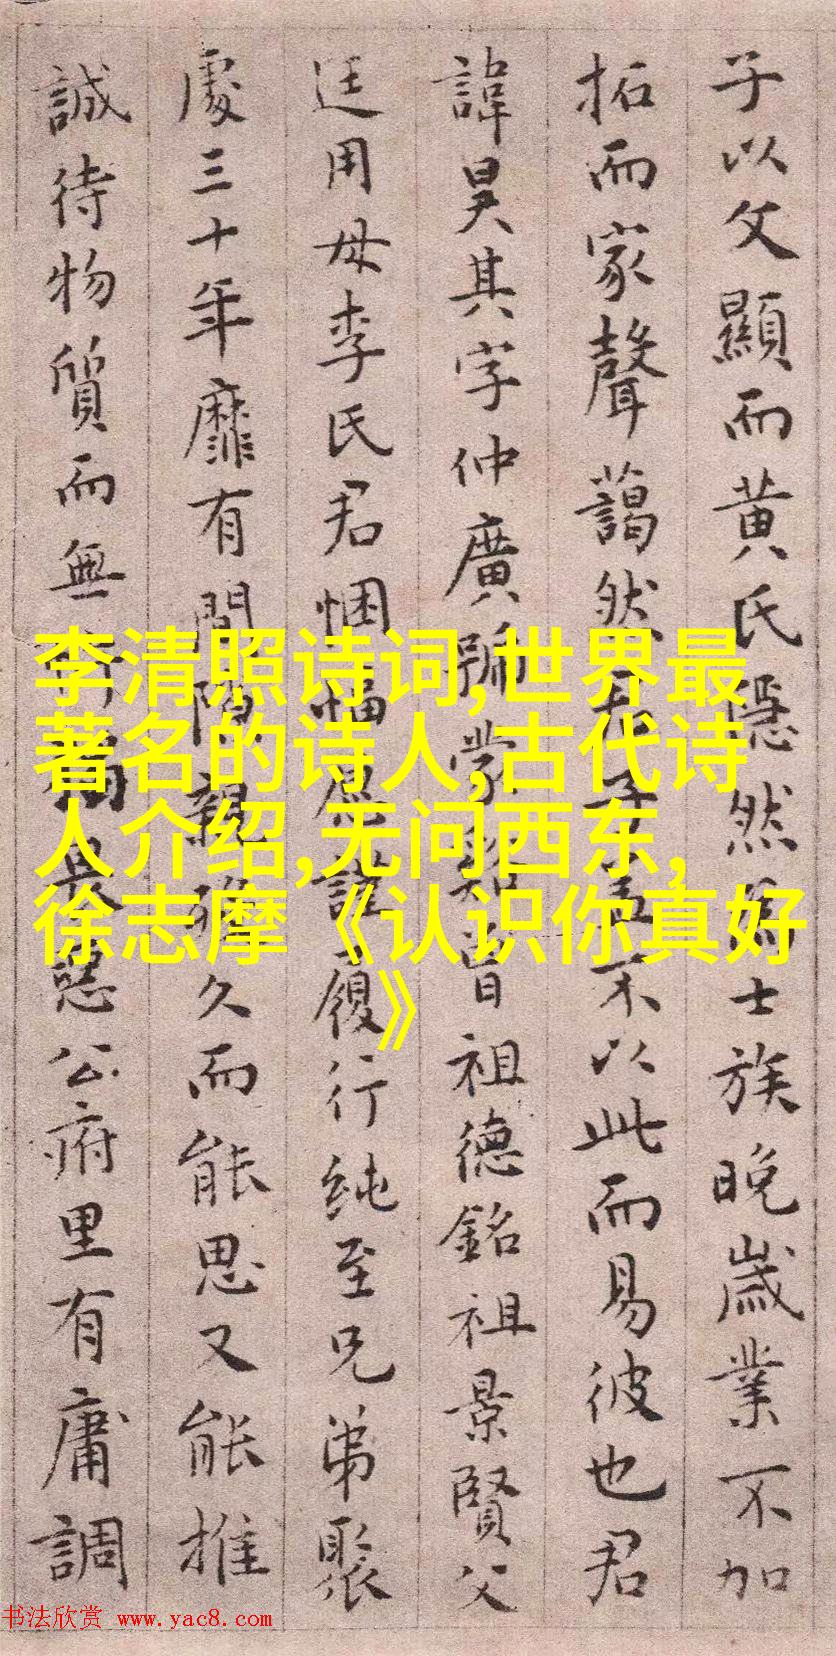 子以父顯而黃氏隱然為士族晚歲業不加
拓而家聲藹然君子盖不以此而易彼也君
諱昊其字仲廣號蒙曾祖德銘祖景賢父
廷用母李氏君悃愊履行純至兄弟聚
處三十年靡有間親久而能思又能推
誠待物質而無是公府里有庸調
李清照诗词,世界最
著名的诗人,古代诗
人介绍,无问西东,
徐志摩《认识你真好
》
书法欣赏 www.yac8.com